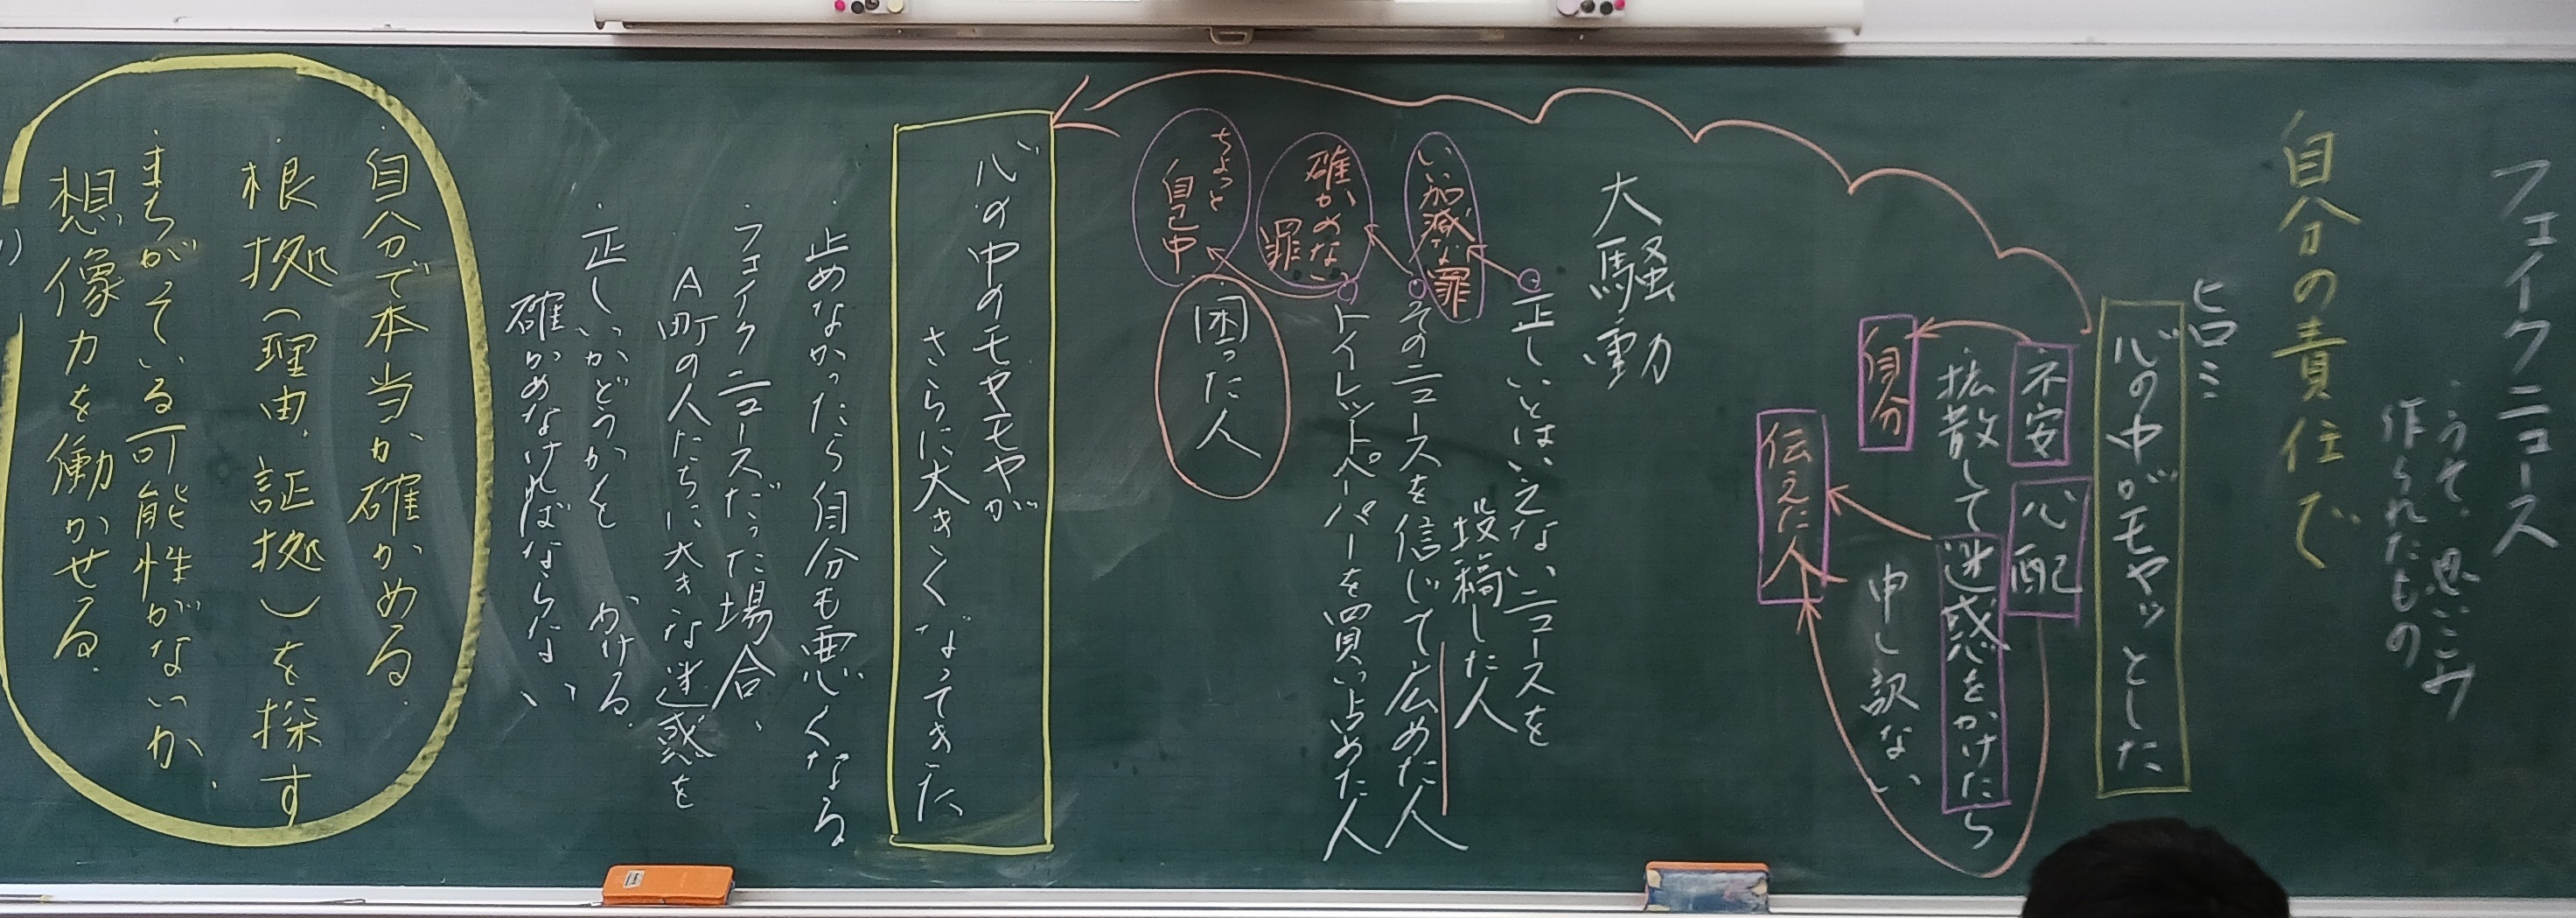 フェイクニュース
・うそ、思いこみ
作られたもの
自分の責任で
ヒロミ
心の中がモヤッとした
不安 心配
・拡散して迷惑をかけたら
申し訳ない
自分
伝えた人
大騒動
正しいとはいえないニュースを
投稿した人
いい加減な罪
そのニュースを信じて広めた人
確かめない
罪
トイレットペーパーを買い占めた人
ちょっと
自己中
困った人
心の中のモヤモヤが
さらに大きくなってきた
・止めなかったら自分も悪くなる
・フェイクニュースだった場合、
A町の人たちに大きな迷惑を
かける。
・正しいかどうかを
確かめなければならない
・自分で本当か確かめる。
・根拠（理由、証拠）を探す
・まちがっている可能性がないか、
想像力を働かせる。